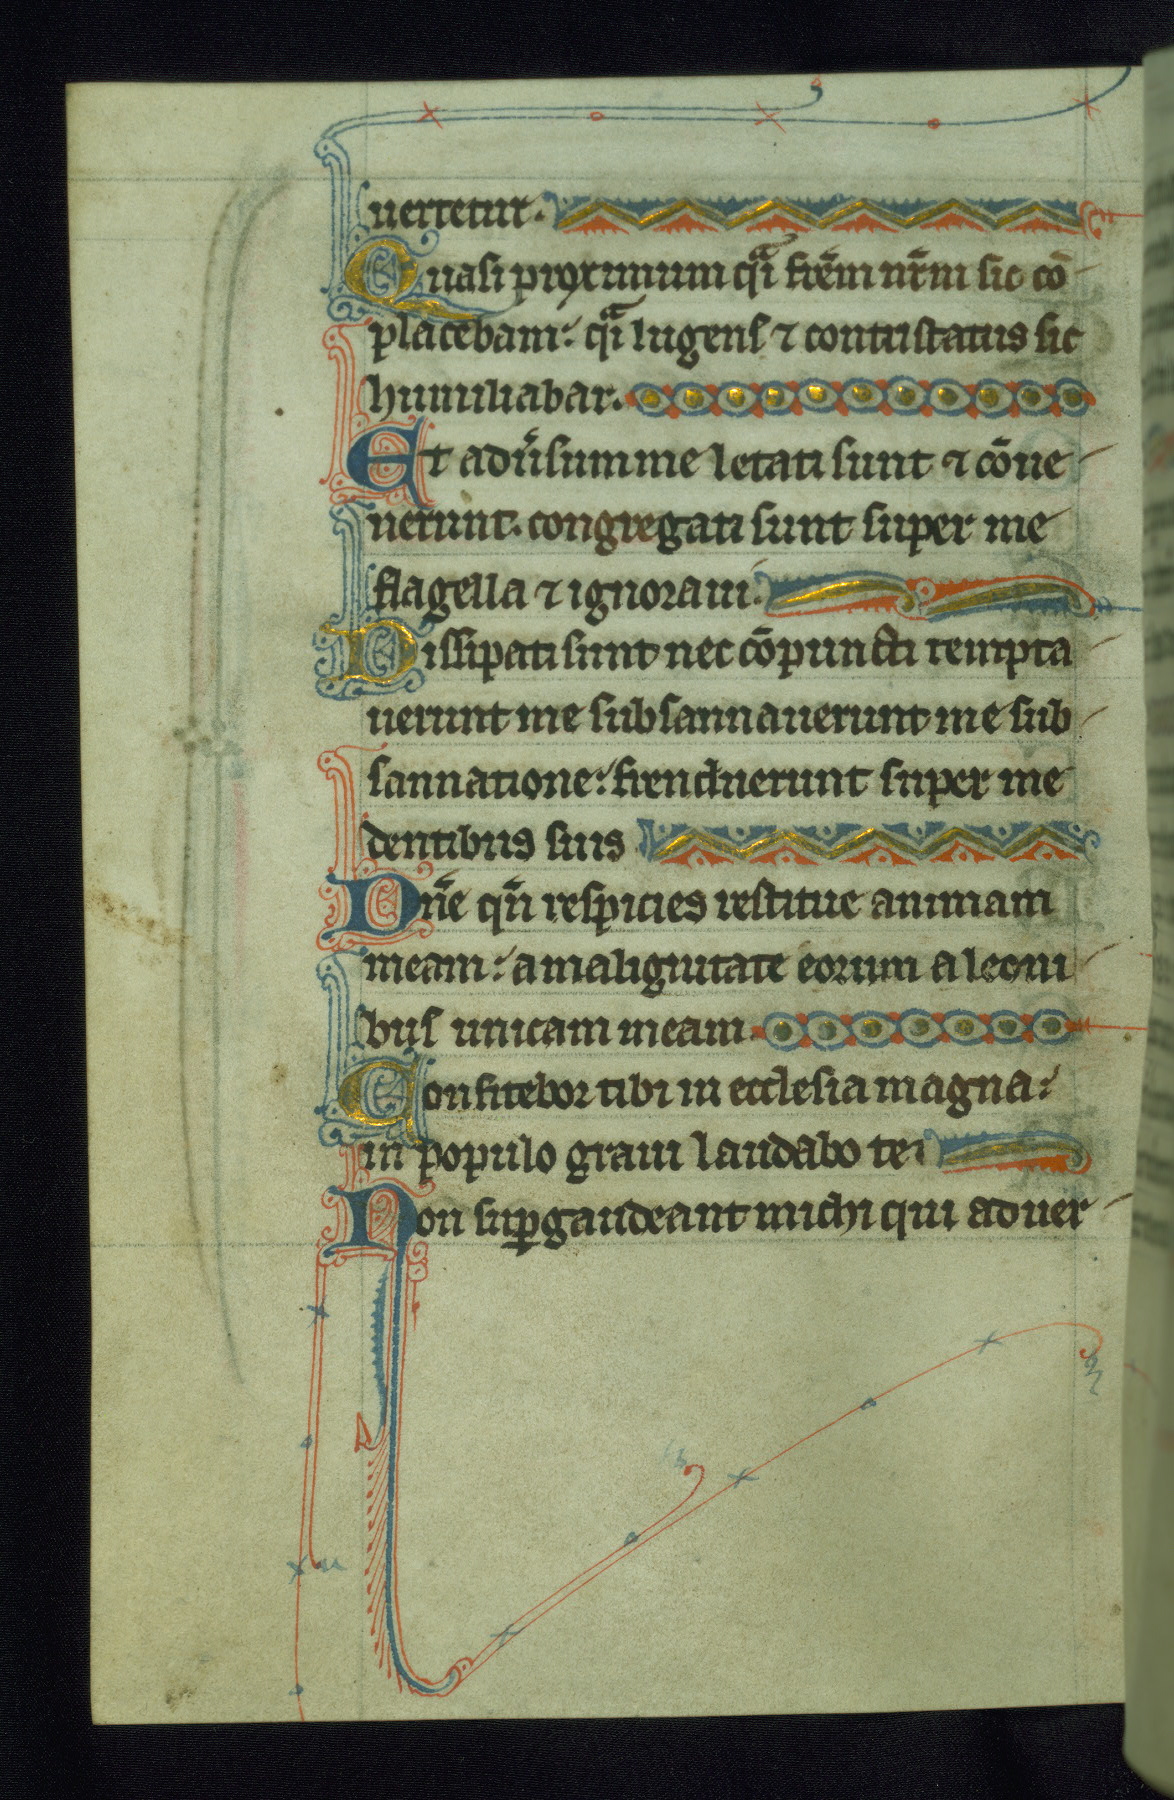 uertetur.
Quasi proximum q̃i frẽm nr̃m sic cō
placebam: q̃i lugens ⁊ contristatus sic
humiliabar.
Et adũsum me letati sunt ⁊ cōue
nerunt. congregati sunt super me
flagella ⁊ ignoraui.
Dissipati sunt nec cōpuncti tempta
uerunt me subsannauerunt me sub
sannatione: frenduerunt super me
dentibus suis
Dñe qñ respicies restitue animam
meam: a malignitate eorum a leoni
bus unicam meam.
Confitebor tibi in ecclesia magna:
in populo graui laudabo te.
Non suꝑgaudeant michi qui aduer